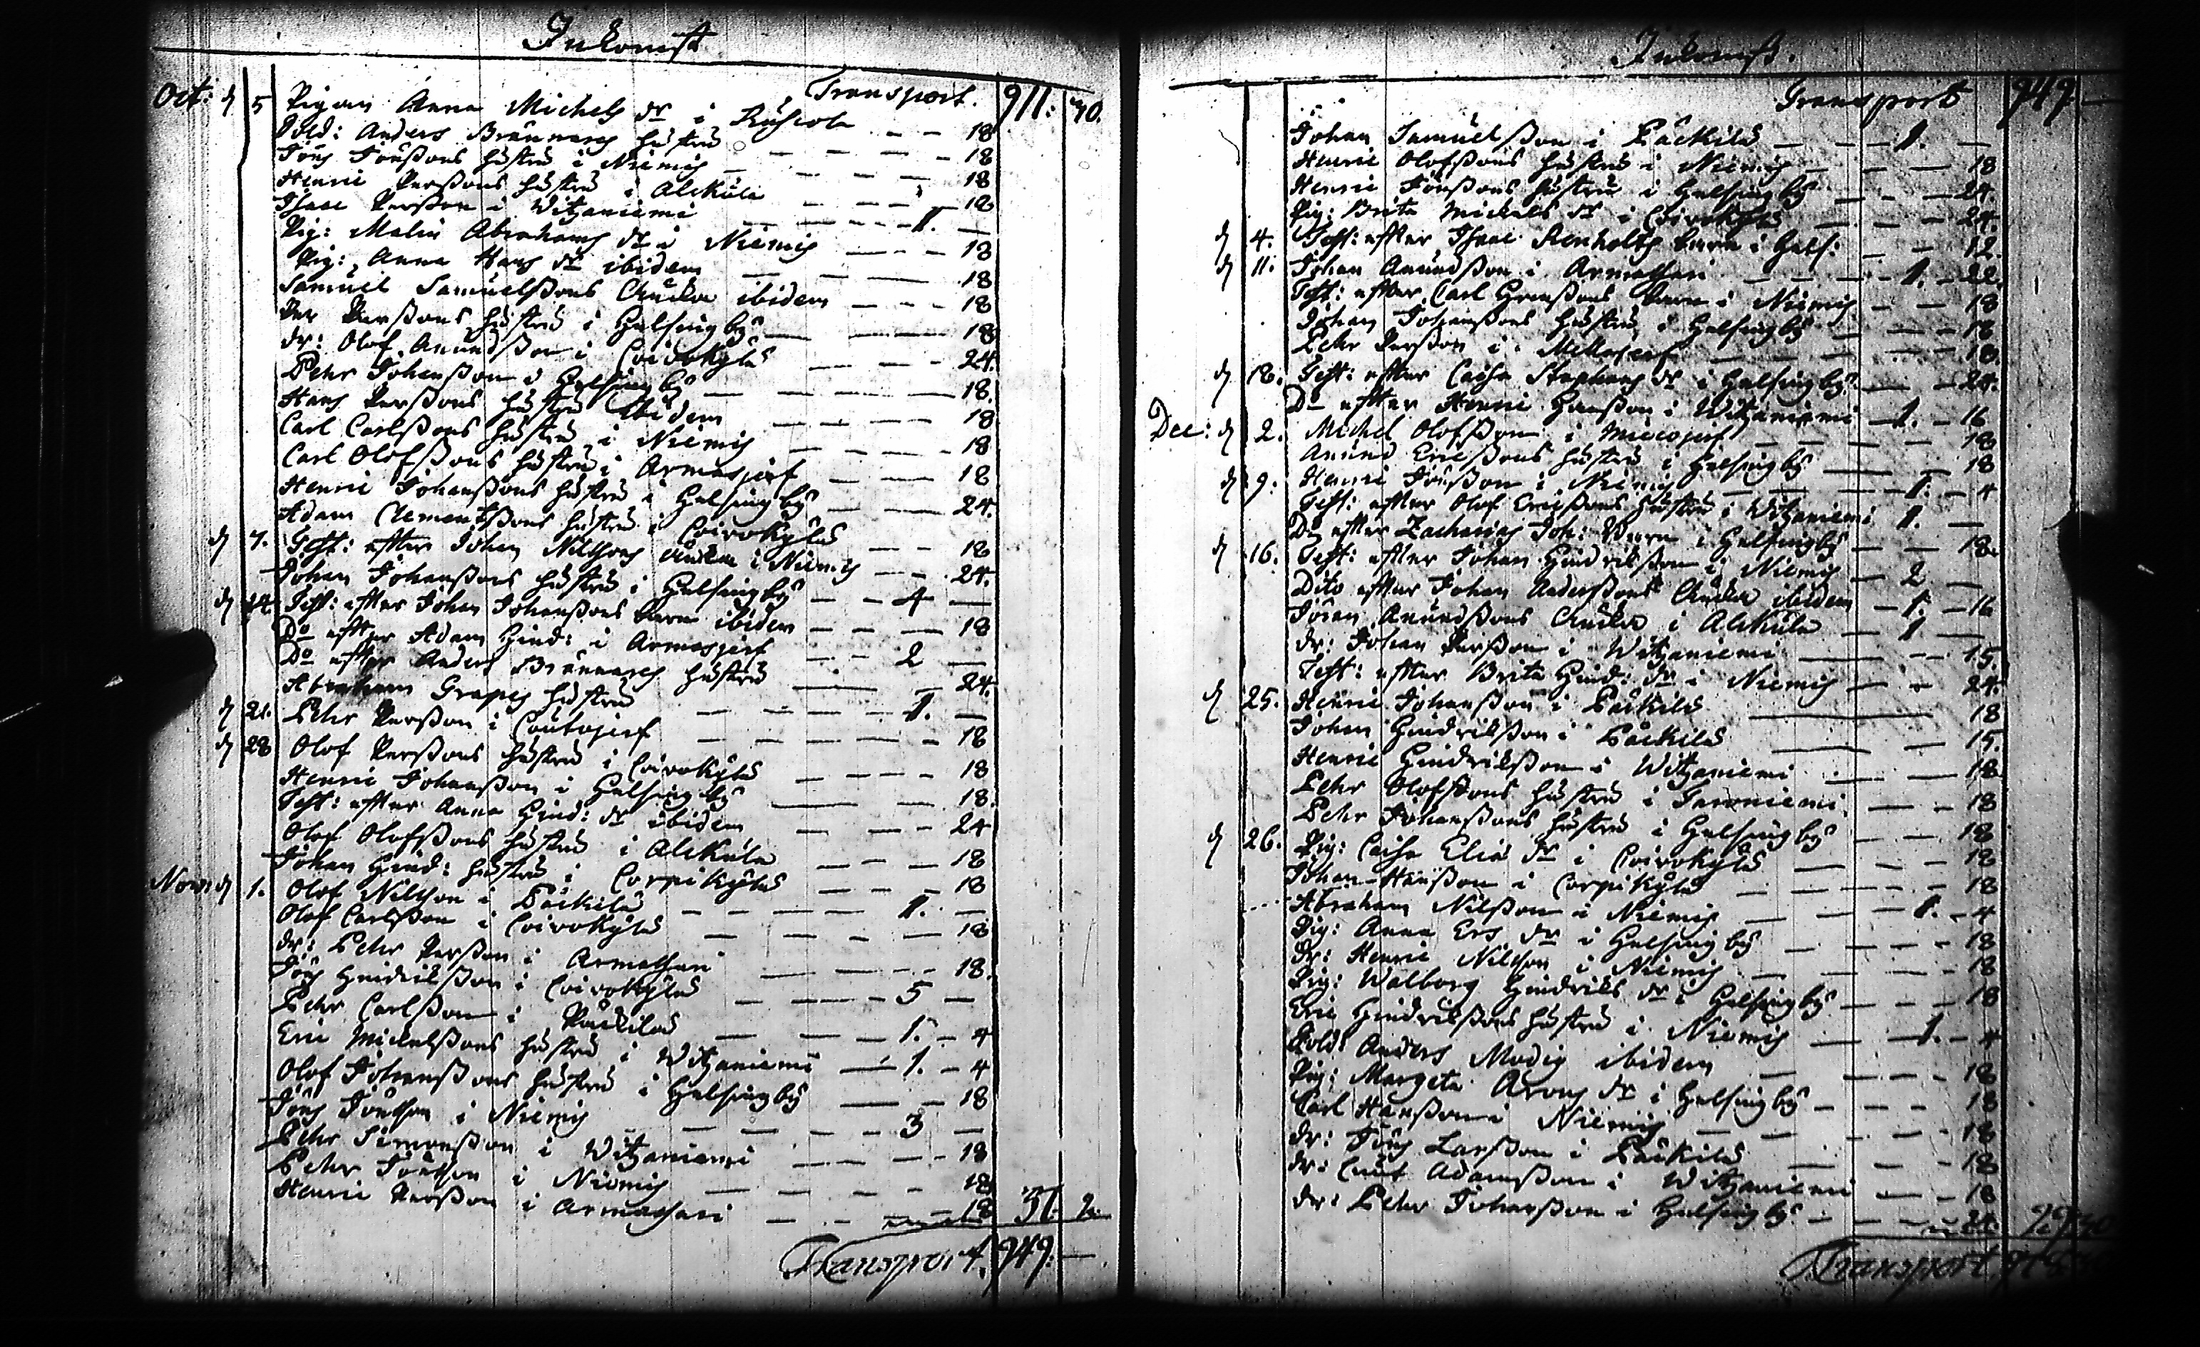 Inkomst
Transport. 911: 30.
Oct: d 5 Pigan Anna Michels dr i Ruskola - - 18
Sold: Anders Brännares hustru - - - - 18
Jöns Jönßons hustru i Niemis - - - - 18
Henric Perßons hustru i Alckula - - - 18
Isaac Perßon i Witzaniemi - - - 1. -
Pig: Malin Abrahams dr i Niemis - - - 18
Pig: Anna Hans dr ibidem - - - 18
Samuel Samuelßons Änka ibidem - - - 18
Per Perßons hustru i Helsingby - - 18
dr: Olof Anundßon i Coivokylä - - - 24.
Pehr Johanßon i Helsingby - - - 18.
Hans Perßons hustru ibidem - - - 18
Carl Carlßons hustru i Niemis - - - 18
Carl Olofßons hustru i Armasjerf - - - 18
Henric Johanßons hustru i Helsingby - - - 24.
Adam Clementßons hustru i Coivokylä - - - 18
d 7. Test: efter Johan Nilssons Änka i Niemis - - 24.
Johan Johanßons hustru i Helsingby - - 4 -
d 14. Test: efter Johan Johanßons barn ibidem - - - 18
Do efter Adam Hind: i Armasjerf - - 2 -
Do efter Anders Brännares hustru - - 24.
Abraham Grapes hustru - - - 1. -
d 21. Pehr Perßon i Coutojerf - - - - 18
d 28 Olof Perßons hustru i Coivokylä - - - - 18
Henric Johanßon i Helsingby - - - 18.
Test: efter Anna Hind: dr ibidem - - - 24
Olof Olofßons hustru i Alckula - - - 18
Johan Hind: hustru i Corpikylä - - - 18
Nov: d 1. Olof Nilsson i Päckilä - - - 1. -
Olof Carlßon i Coivokylä - - - - 18
dr: Pehr Perßon i Armassari - - - 18.
Jöns Hindrikßon i Coivokylä - - - 5 -
Pehr Carlßon i Päckilä - - - 1. - 4
Eric Mickelßons hustru i Witzaniemi - 1. - 4
Olof Johanßons hustru i Helsingby - - 18
Jöns Jönsson i Niemis - - - - 3 -
Pehr Simonßon i Witzaniemi - - - 18
Pehr Jönsson i Niemis - - - - 18
Henric Perßon i Armassari - - - 18 37. 2.
Transport. 949: -
Inkomst.
Transport 949. -
Johan Samuelßon i Päckilä - - 1. -
Henric Olofßons hustru i Niemis - - - 18
Henric Jönßons hustru i Helsingby - - - 24.
Pig: Brita Mickels dr i Coivokylä - - - 24.
d 4. Test: efter Isaac Renholtz barn i Hels: - - 12.
d 11. Johan Anundßon i Armassari - - 1. - 22.
Test: efter Carl Hansßons barn i Niemis - - 18
Johan Johanßons hustru i Helsingby - - - 18
Pehr Perßon i Mellajerf - - - - 18.
d 18. Test: efter Caisa Stephans dr i Helsingby - - 24.
Do efter Henric Hansßon i Witzaniemi - 1. - 16
Dec: d 2. Michel Olofßon i Miecojerf - - - 18
Anund Ericßons hustru i Helsingby - - - 18
d 9. Henric Jönßon i Niemis - - - 1. - 4
Test: efter Olof Ericßons hustru i Witzaniemi 1. -
Do efter Zacharias Joh: barn i Helsingby - - 18.
d 16. Test: efter Johan Hindrikßon i Niemis - 2 -
Dito efter Johan Anderßons Änka ibidem - 1. - 16
Jöran Anundßons Änka i Alckula - 1 -
dr: Johan Perßon i Witzaniemi - - - 15.
Test: efter Brita Hind: dr i Niemis - - 24.
d 25. Henric Johanßon i Päckilä - - 18
Johan Hindrikßon i Päckilä - - - 15.
Henric Hindrikßon i Witzaniemi - - - 18
Pehr Olofßons hustru i Jarhoniemi - - - 18
Pehr Johanßons hustru i Helsingby - - - 18
d 26. Pig: Caisa Elis dr i Coivokylä - - - 18
Johan Hansßon i Corpikylä - - - 18
Abraham Nilßon i Niemis - - 1. - 4
Pig: Anna Ers dr i Helsingby - - - - 18
dr: Henric Nilsson i Niemis - - - - 18
Pig: Walborg Hindriks dr i Helsingby - - - 18
Eric Hindrikßons hustru i Niemis - 1. - 4
Sold: Anders Modig ibidem - - - - 18
Pig: Margeta Arons dr i Helsingby - - - 18
Carl Hansßon i Niemis - - - - 18
dr: Jöns Larßon i Päckilä - - - - 18
dr: Cnut Adamßon i Witzaniemi - - - 18
dr: Pehr Johanßon i Helsingby - - - 24. 29. 30
Transport 978.